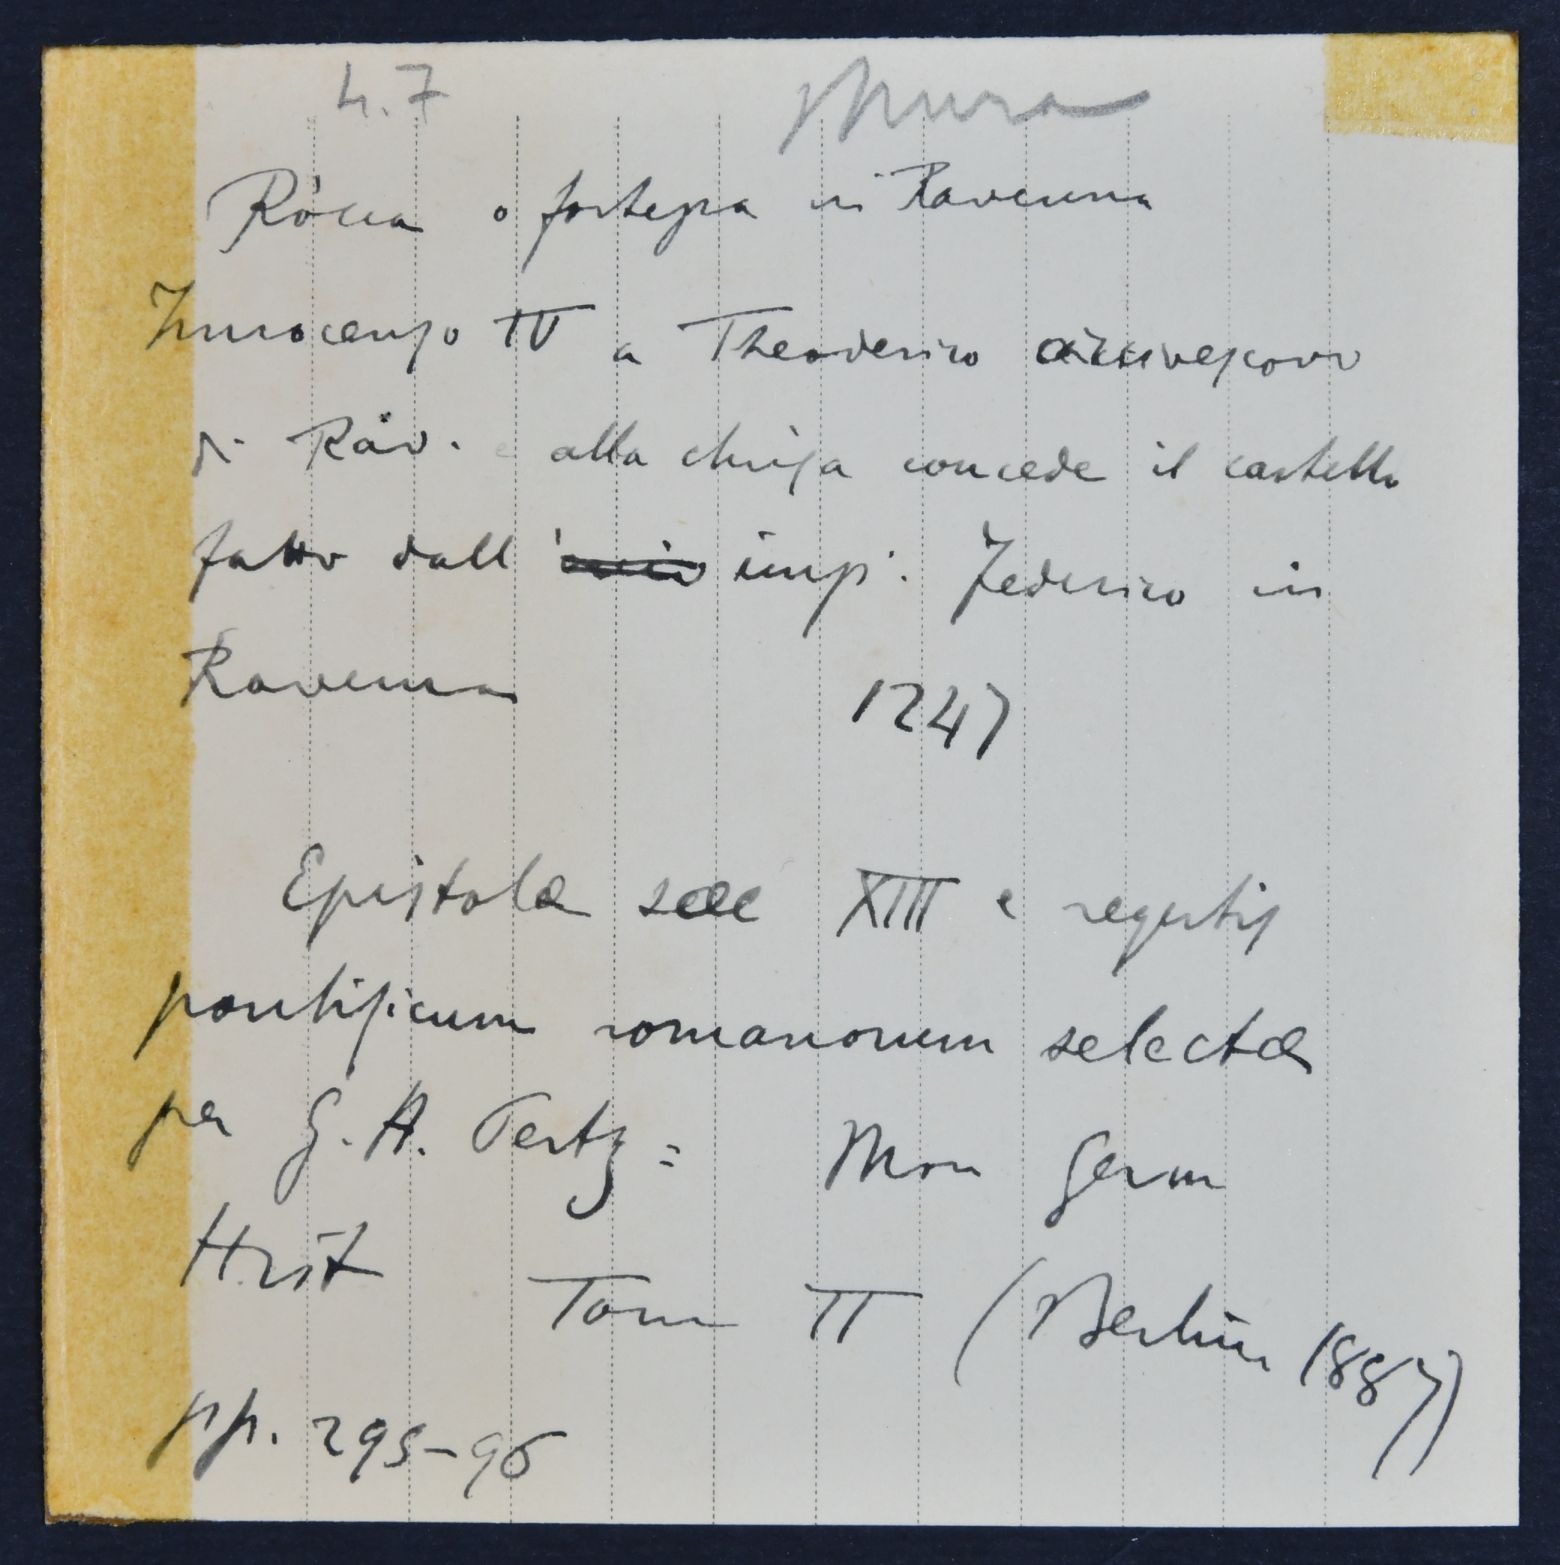 4.7 Mura
Rocca o fortezza in Ravenna
Innocenzo IV a Theoderico arcivescovo
di Rav. e alla chiesa concede il castello
fatto dall' imp. Federico in
Ravenna 1247
Epistolæ sæc XIII e regestis
pontificum romanorum selectæ
per G. H. Pertz = Mon Germ
Hist Tom II (Berlin 1887)
pp. 295-96